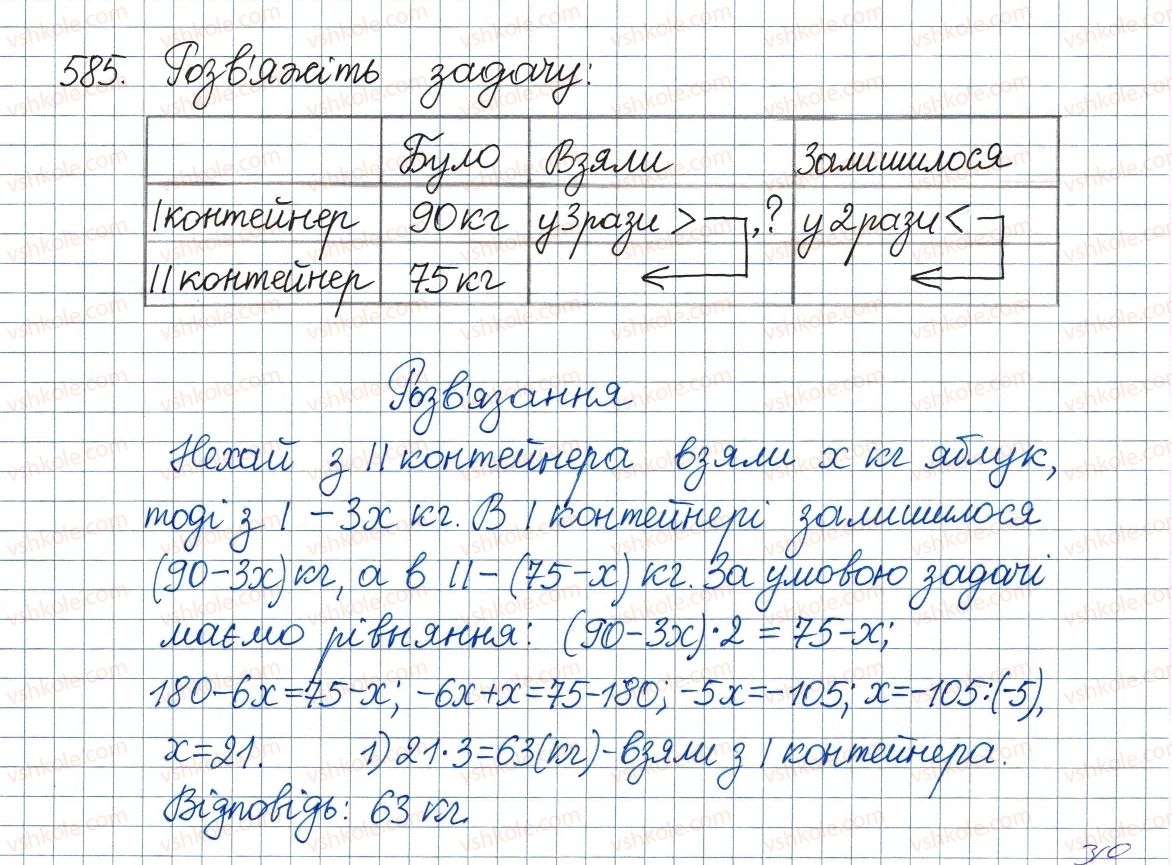 585. Розв'яжіть задачу:
Було Взяли Залишилося
I контейнер 90 кг у 3 рази > ,? у 2 рази <
II контейнер 75 кг
Розв'язання
Нехай з II контейнера взяли x кг яблук,
тоді з I – 3x кг. В I контейнері залишилося
(90-3x) кг, а в II – (75-x) кг. За умовою задачі
маємо рівняння: (90-3x)·2 = 75-x;
180-6x=75-x; -6x+x=75-180; -5x=-105; x=-105:(-5),
x=21. 1) 21·3=63(кг)-взяли з I контейнера.
Відповідь: 63 кг.